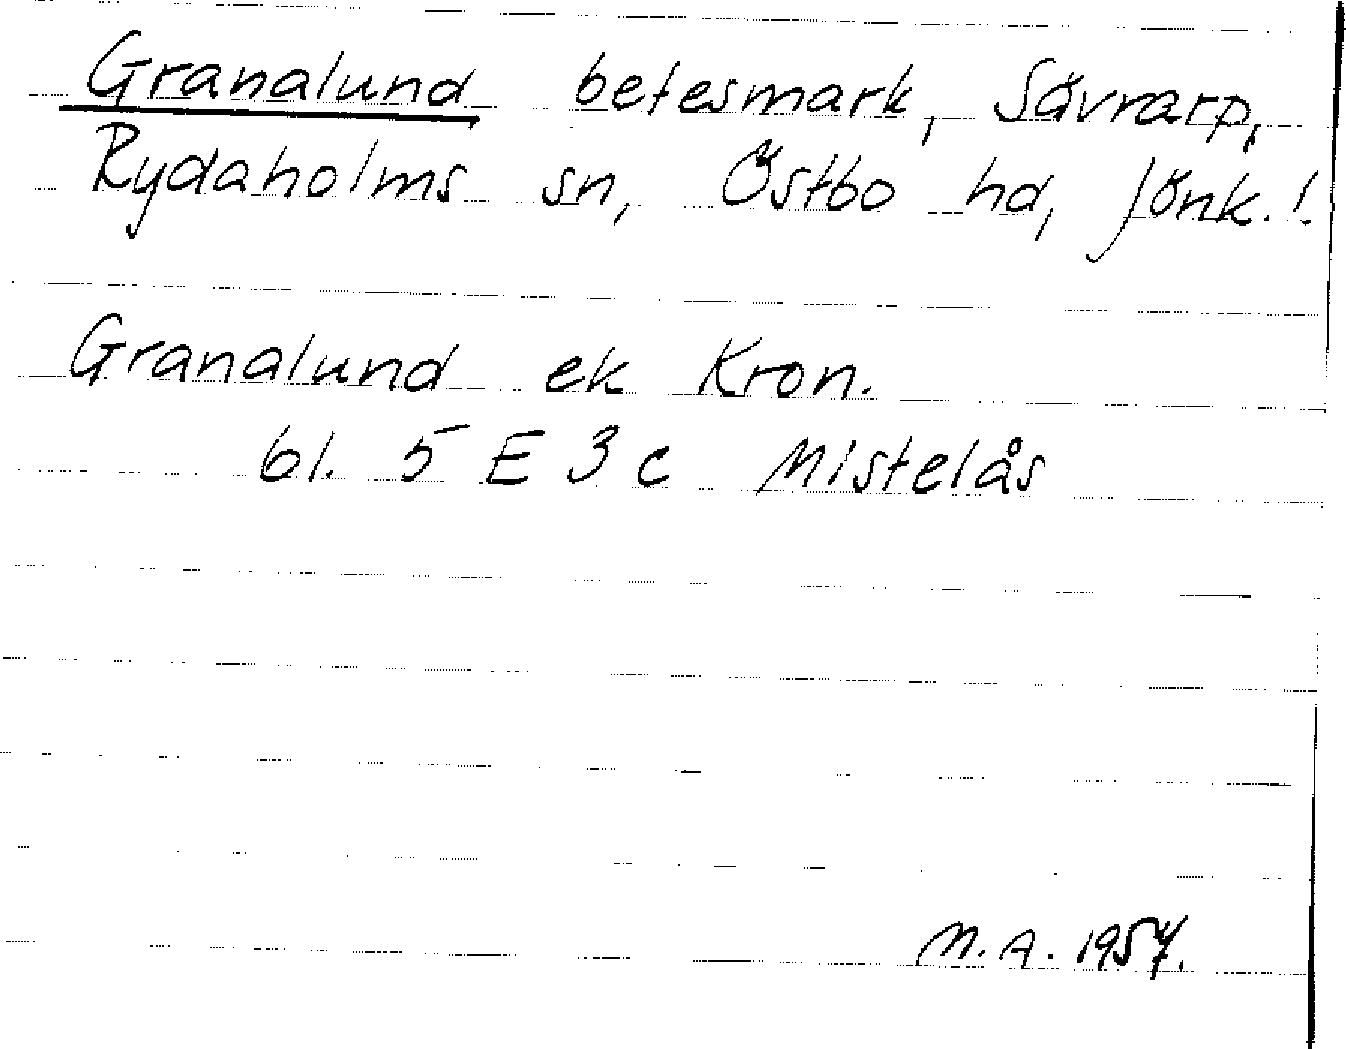 Granalund betesmark, Sävrarp,
Rydaholms sn, Östbo hd, Jönk. l.
Granalund ek Kron.
bl. 5 E 3 c Mistelås
M. A. 1957.